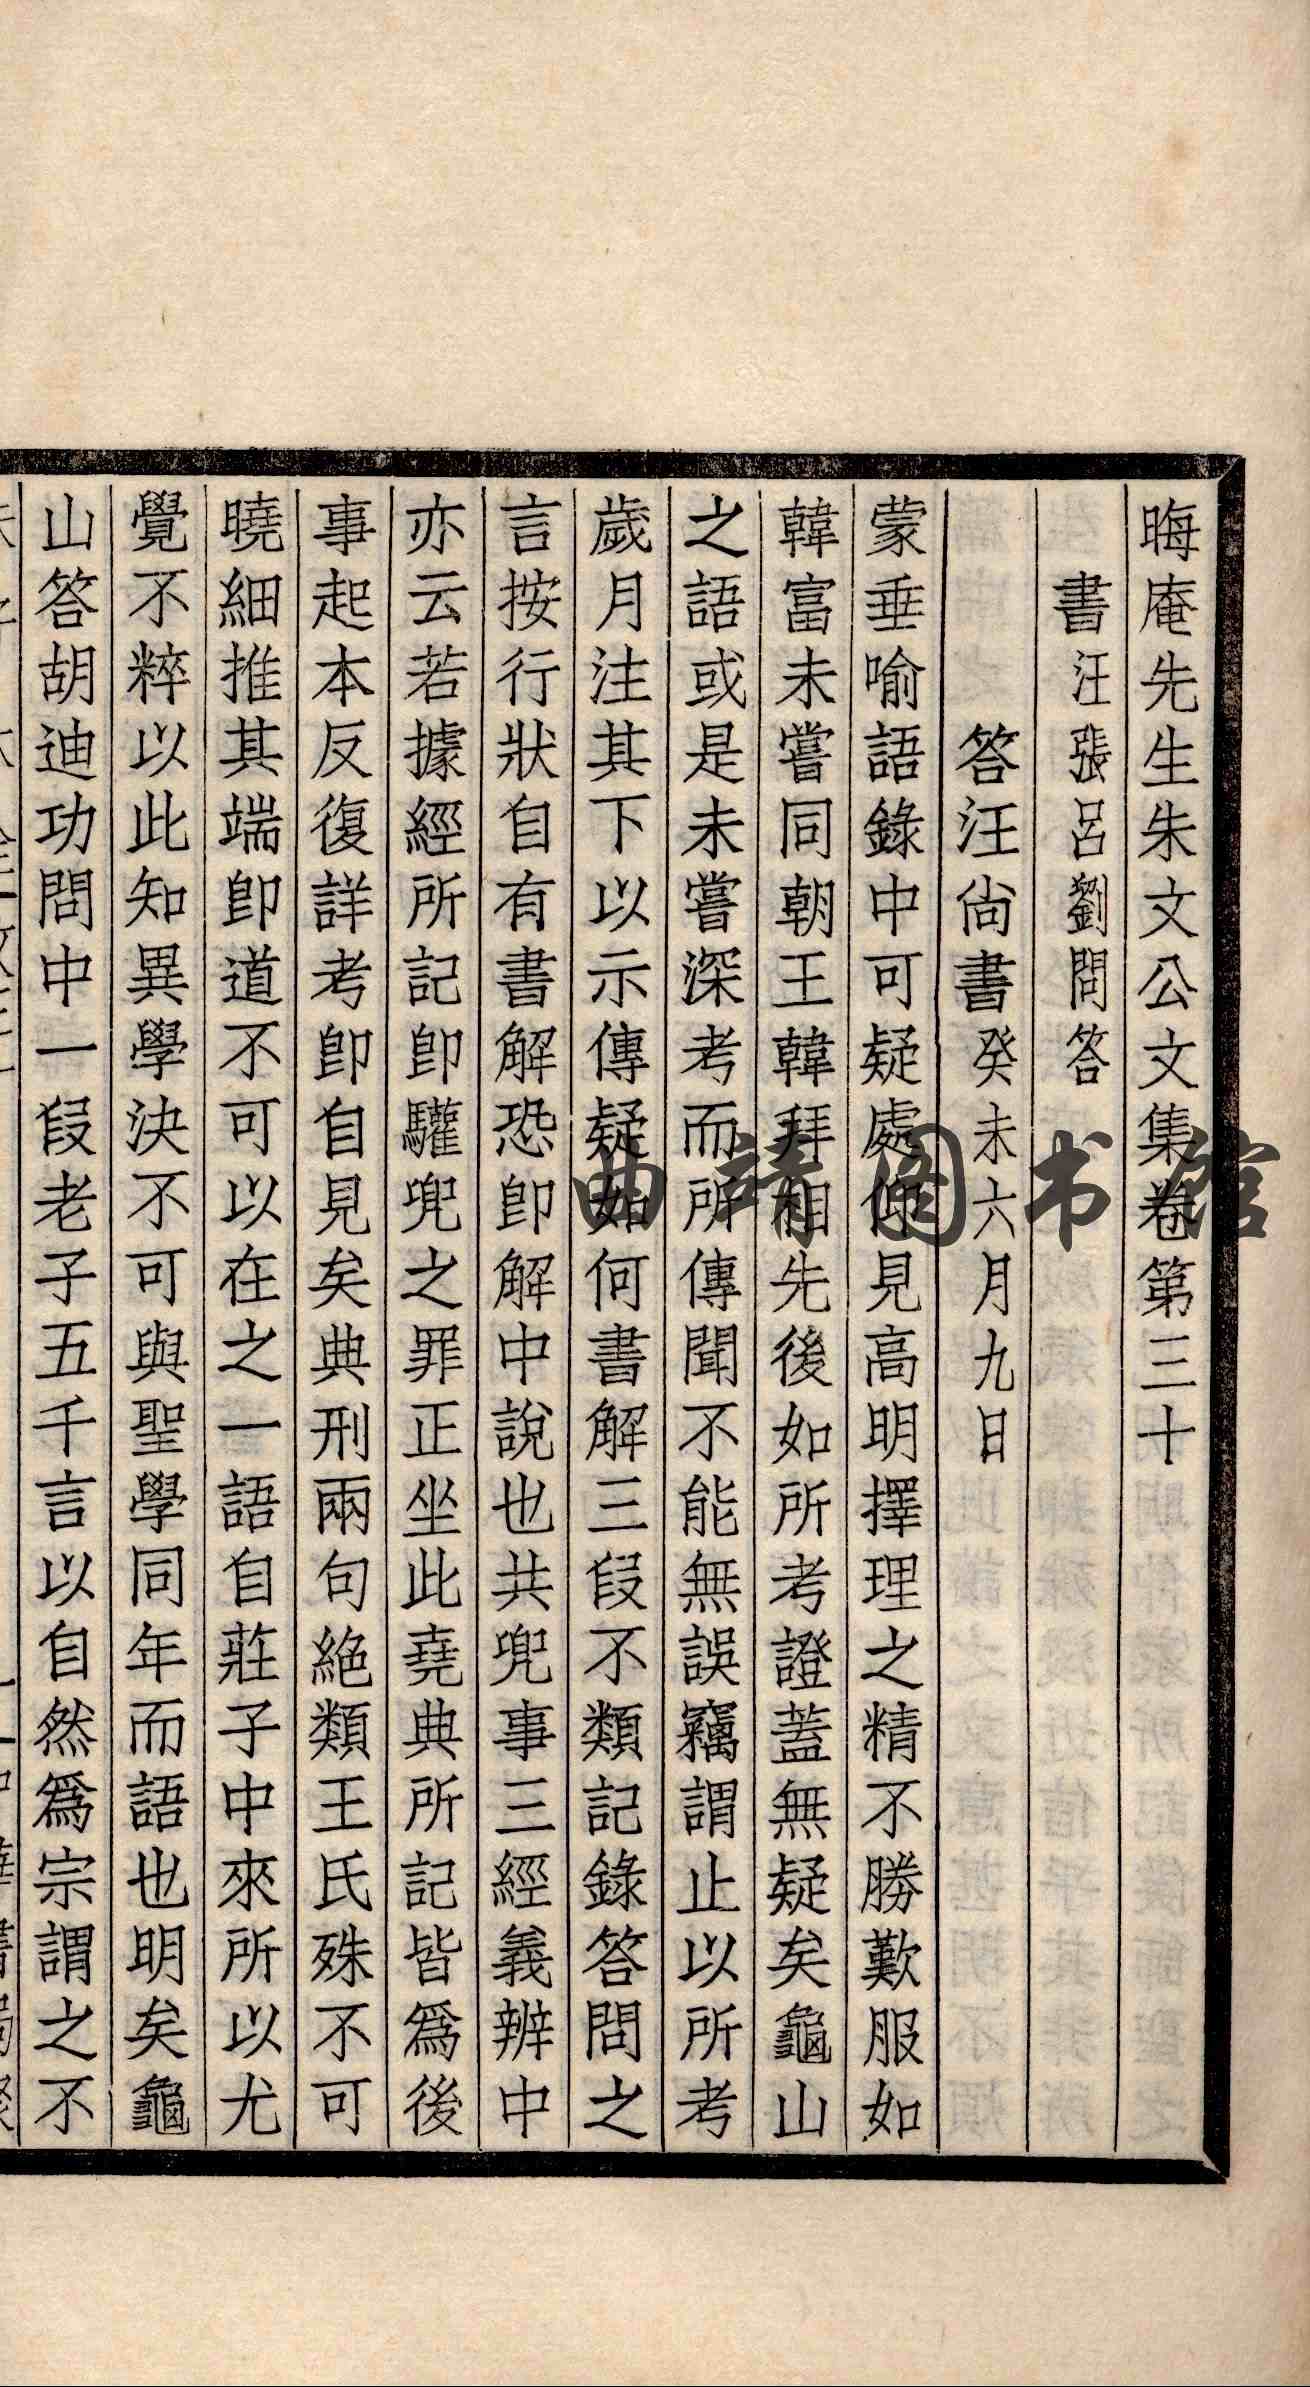 晦庵先生朱文公文集卷第三十
書汪張呂劉問答
答汪尚書癸未六月九日
蒙垂喻語錄中可疑處仰見高明擇理之精不勝歎服如
韓富未嘗同朝王韓拜相先後如所考證蓋無疑矣龜山
之語或是未嘗深考而所傳聞不能無誤竊謂止以所考
歲月注其下以示傳疑如何書解三段不類記錄答問之
言按行狀自有書解恐卽解中說也共兜事三經義辨中
亦云若據經所記卽驩兜之罪正坐此堯典所記皆爲後
事起本反復詳考卽自見矣典刑兩句絶類王氏殊不可
曉細推其端卽道不可以在之一語自莊子中來所以尤
覺不粹以此知異學決不可與聖學同年而語也明矣龜
山答胡迪功問中一段老子五千言以自然爲宗謂之不
曲靖图书馆